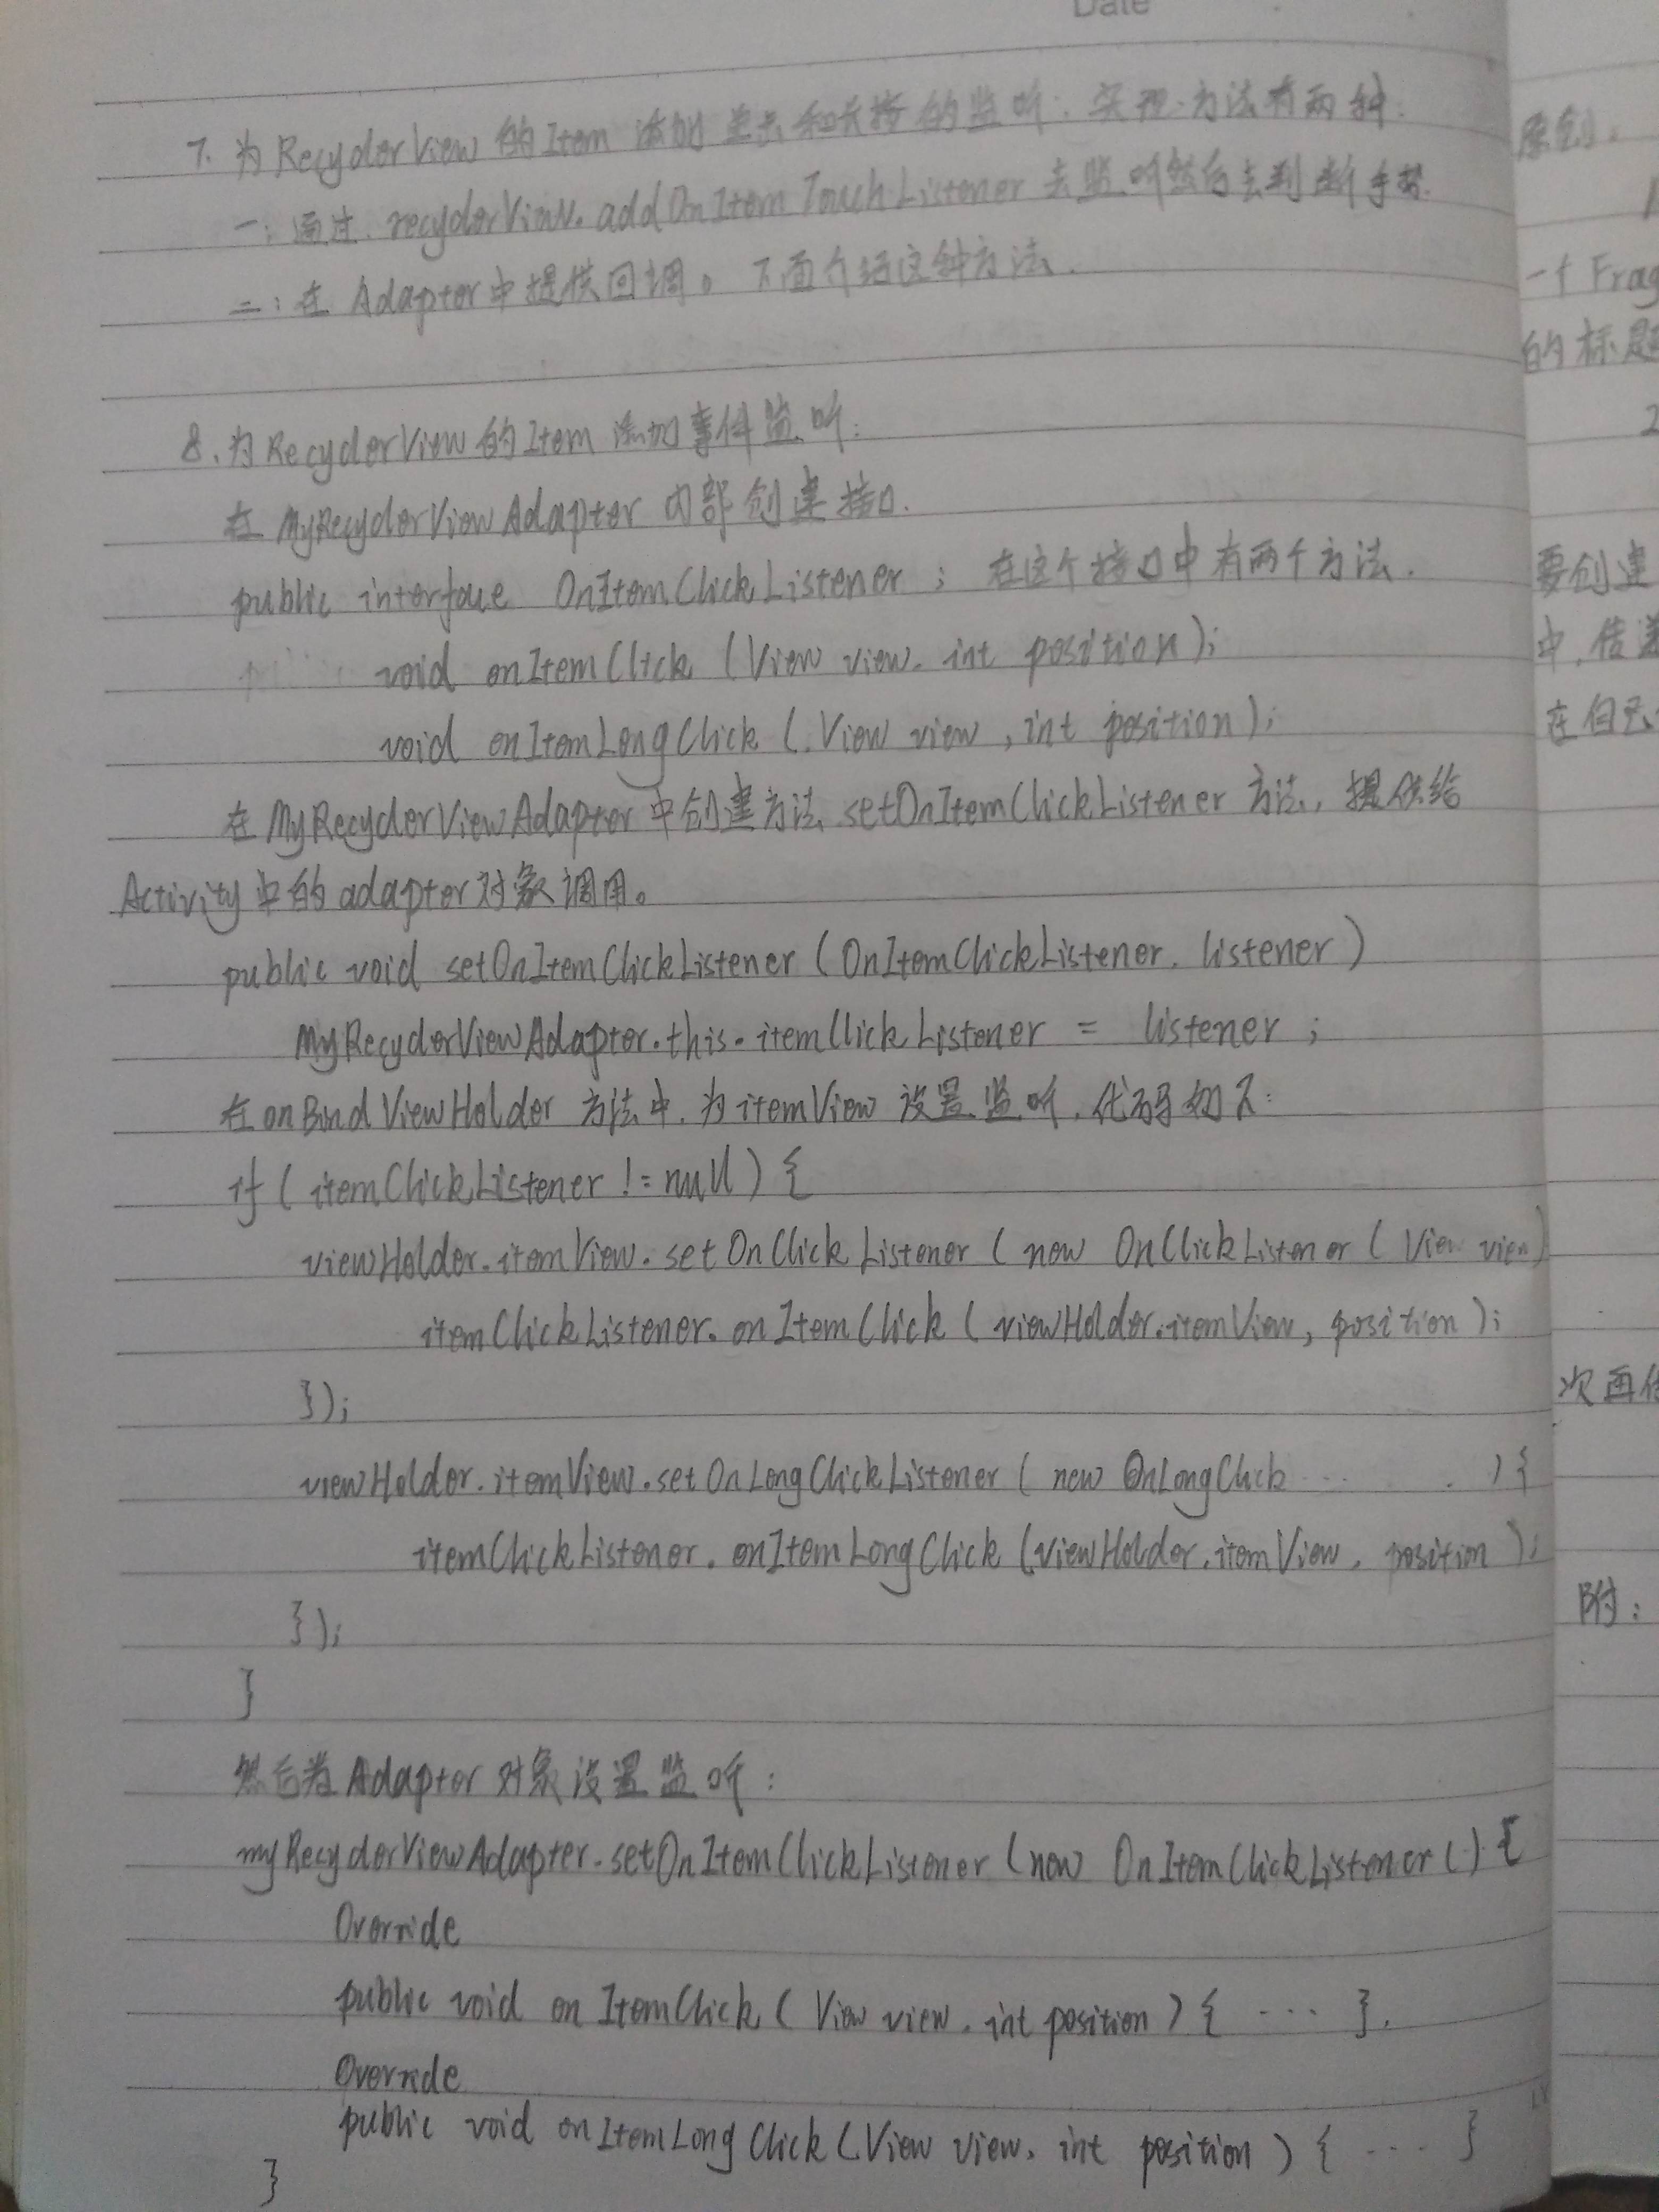 Date
7. 为RecyclerView 的Item 添加 单击和长按的监听: 实现方法有两种:
一: 通过 recyclerView.addOnItemTouchListener 去监听然后去判断手势.
二: 在 Adapter中提供回调。 下面介绍这种方法.
8. 为RecyclerView的Item 添加事件监听:
在 MyRecyclerViewAdapter 内部创建接口.
public interface OnItemClickListener ; 在这个接口中有两个方法.
void onItemClick (View view, int position);
void onItemLongClick (View view, int position);
在MyRecyclerViewAdapter中创建方法 setOnItemClickListener 方法, 提供给
Activity中的adapter对象调用。
public void setOnItemClickListener (OnItemClickListener. listener)
MyRecyclerViewAdapter.this.itemClickListener = listener ;
在onBindViewHolder 方法中, 为itemView 设置监听. 代码如下:
if ( itemClickListener != null ) {
viewHolder.itemView.setOnClickListener ( new OnClickListener ( View view)
itemClickListener.onItemClick ( viewHolder.itemView, position );
});
viewHolder.itemView.setOnLongClickListener ( new OnLongClick ... ) {
itemClickListener.onItemLongClick (viewHolder.itemView, position );
});
}
然后为Adapter 对象设置监听:
myRecyclerViewAdapter.setOnItemClickListener (new OnItemClickListener () {
Override
public void onItemClick ( View view, int position ) { ... }.
Override
public void onItemLongClick (View view, int position ) { ... }
}
原创.
一个Frag
的标题
2
要创建
中,传递
在白天
次再
附: